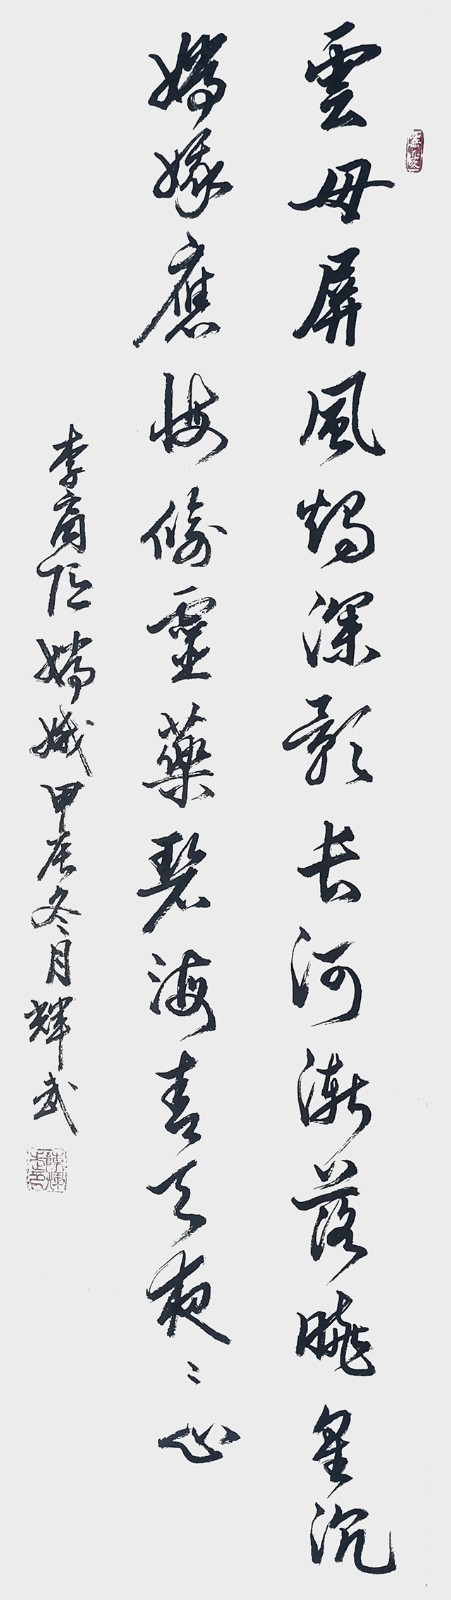 雲母屏風燭深影長河漸落曉星沉
嫦娥應悔偷靈藥碧海青天夜〻心
李商隱嫦娥甲辰冬月輝武